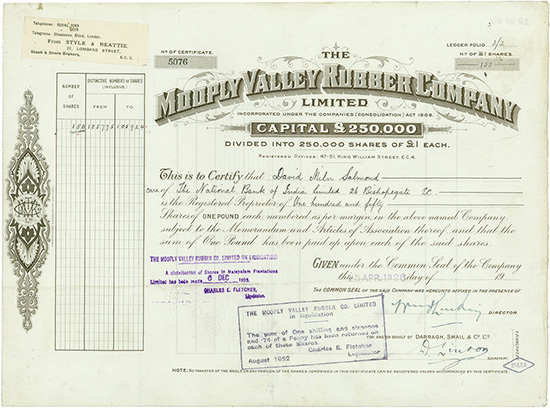 Telephones: ROYAL
Telegrams, Glissdance Stock, London.
From STYLE & BEATTIE,
20, LOMBARD STREET,
Stock & Share Brokers, E.C.3.
Nº OF CERTIFICATE.
5076
LEDGER FOLIO 1/2
Nº OF £1 SHARES.
150
NUMBER OF SHARES
DISTINCTIVE NUMBERS OF SHARES (INCLUSIVE)
FROM TO
150
THE
MOOPLY VALLEY RUBBER COMPANY
LIMITED
INCORPORATED UNDER THE COMPANIES (CONSOLIDATION) ACT 1908.
CAPITAL £250,000
DIVIDED INTO 250,000 SHARES OF £1 EACH.
REGISTERED OFFICES: 47-51, KING WILLIAM STREET, E.C.4.
This is to Certify that David Miln Salmond
care of The National Bank of India Limited 26 Bishopsgate EC
is the Registered Proprietor of One hundred and fifty
Shares of ONE POUND each, numbered as per margin, in the above named Company,
subject to the Memorandum and Articles of Association thereof, and that the
sum of One Pound has been paid up upon each of the said shares.
GIVEN under the Common Seal of the Company
this APR. day of 19
THE COMMON SEAL OF THE SAID COMPANY WAS HEREUNTO AFFIXED IN THE PRESENCE OF
DIRECTOR.
FOR AND ON BEHALF OF DARRAGH, SMAIL & CO. LTD
D. Linton
SECRETARIES.
THE MOOPLY VALLEY RUBBER CO. LIMITED (IN LIQUIDATION)
A distribution of Shares in Malayalam Plantations
Limited has been made 6 DEC 1928.
CHARLES E. FLETCHER,
Liquidator.
THE MOOPLY VALLEY RUBBER CO. LIMITED
in liquidation
The sum of One shilling and sixpence
and .74 of a Penny has been returned on
each of these Shares.
Charles E. Fletcher
Liquidator
August 1932
NOTE: NO TRANSFER OF THE WHOLE OR ANY PORTION OF THE SHARES COMPRISED IN THIS CERTIFICATE CAN BE REGISTERED UNLESS ACCOMPANIED BY THIS CERTIFICATE